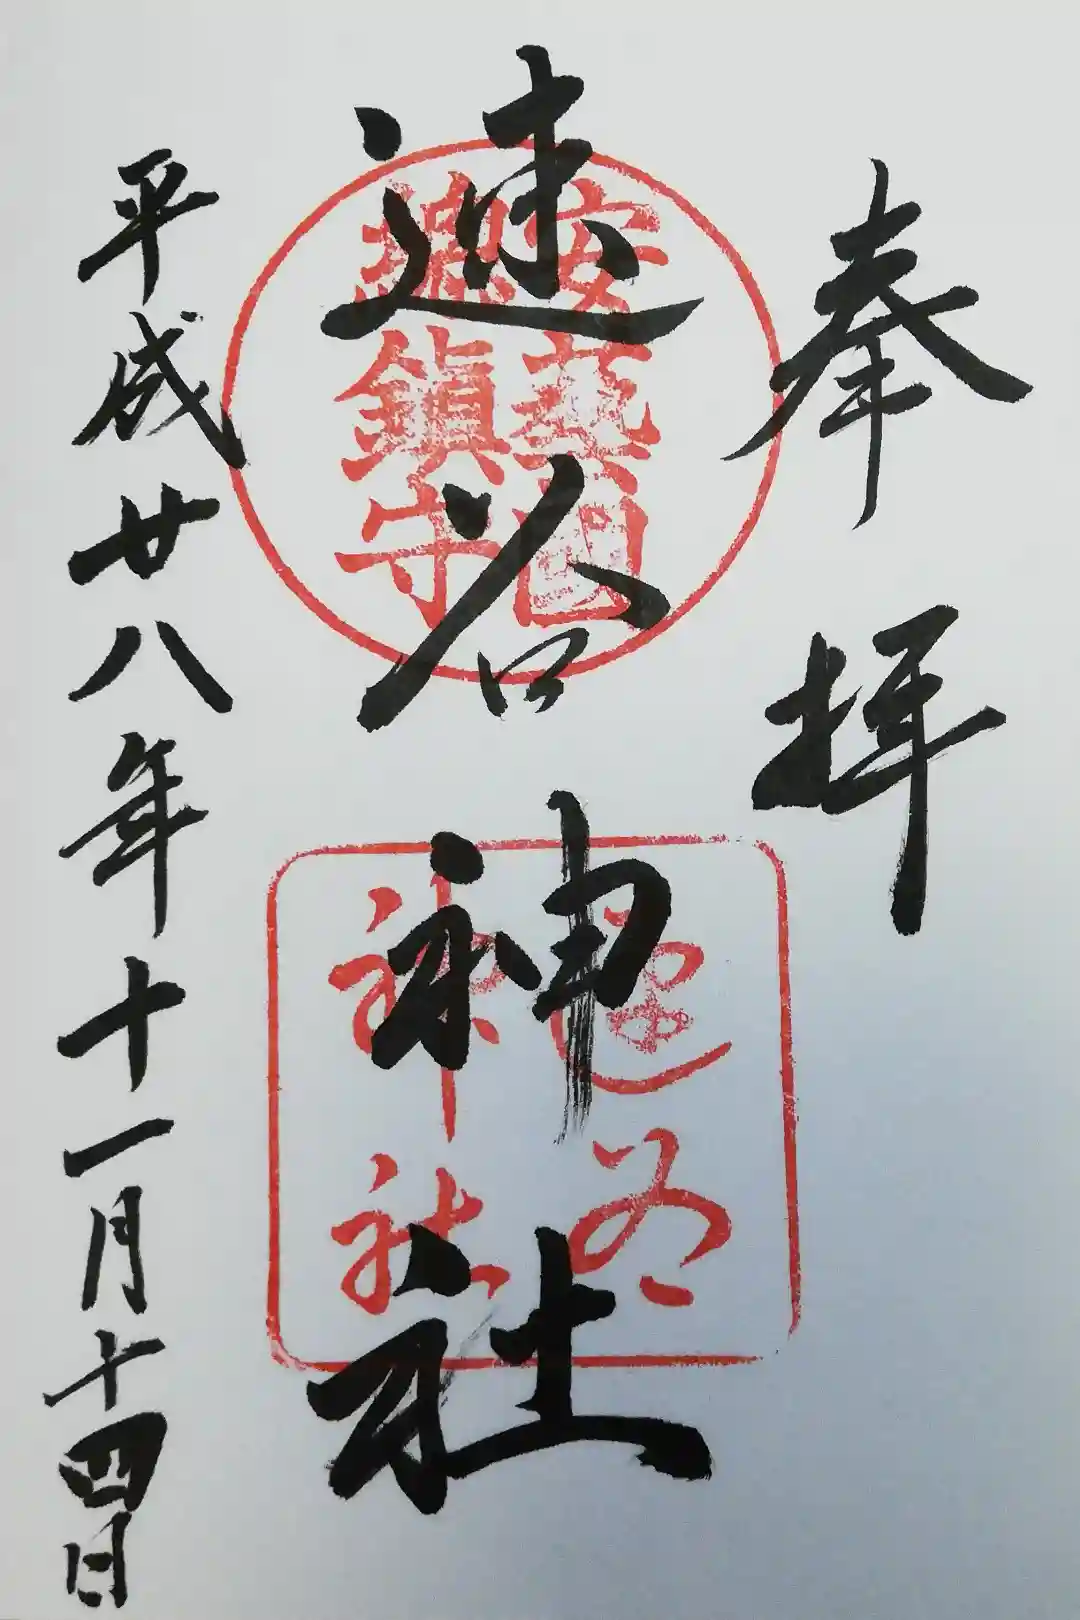 奉拝
安藝国
総鎮守
速谷神社
速谷
神社
平成廿八年十一月十四日